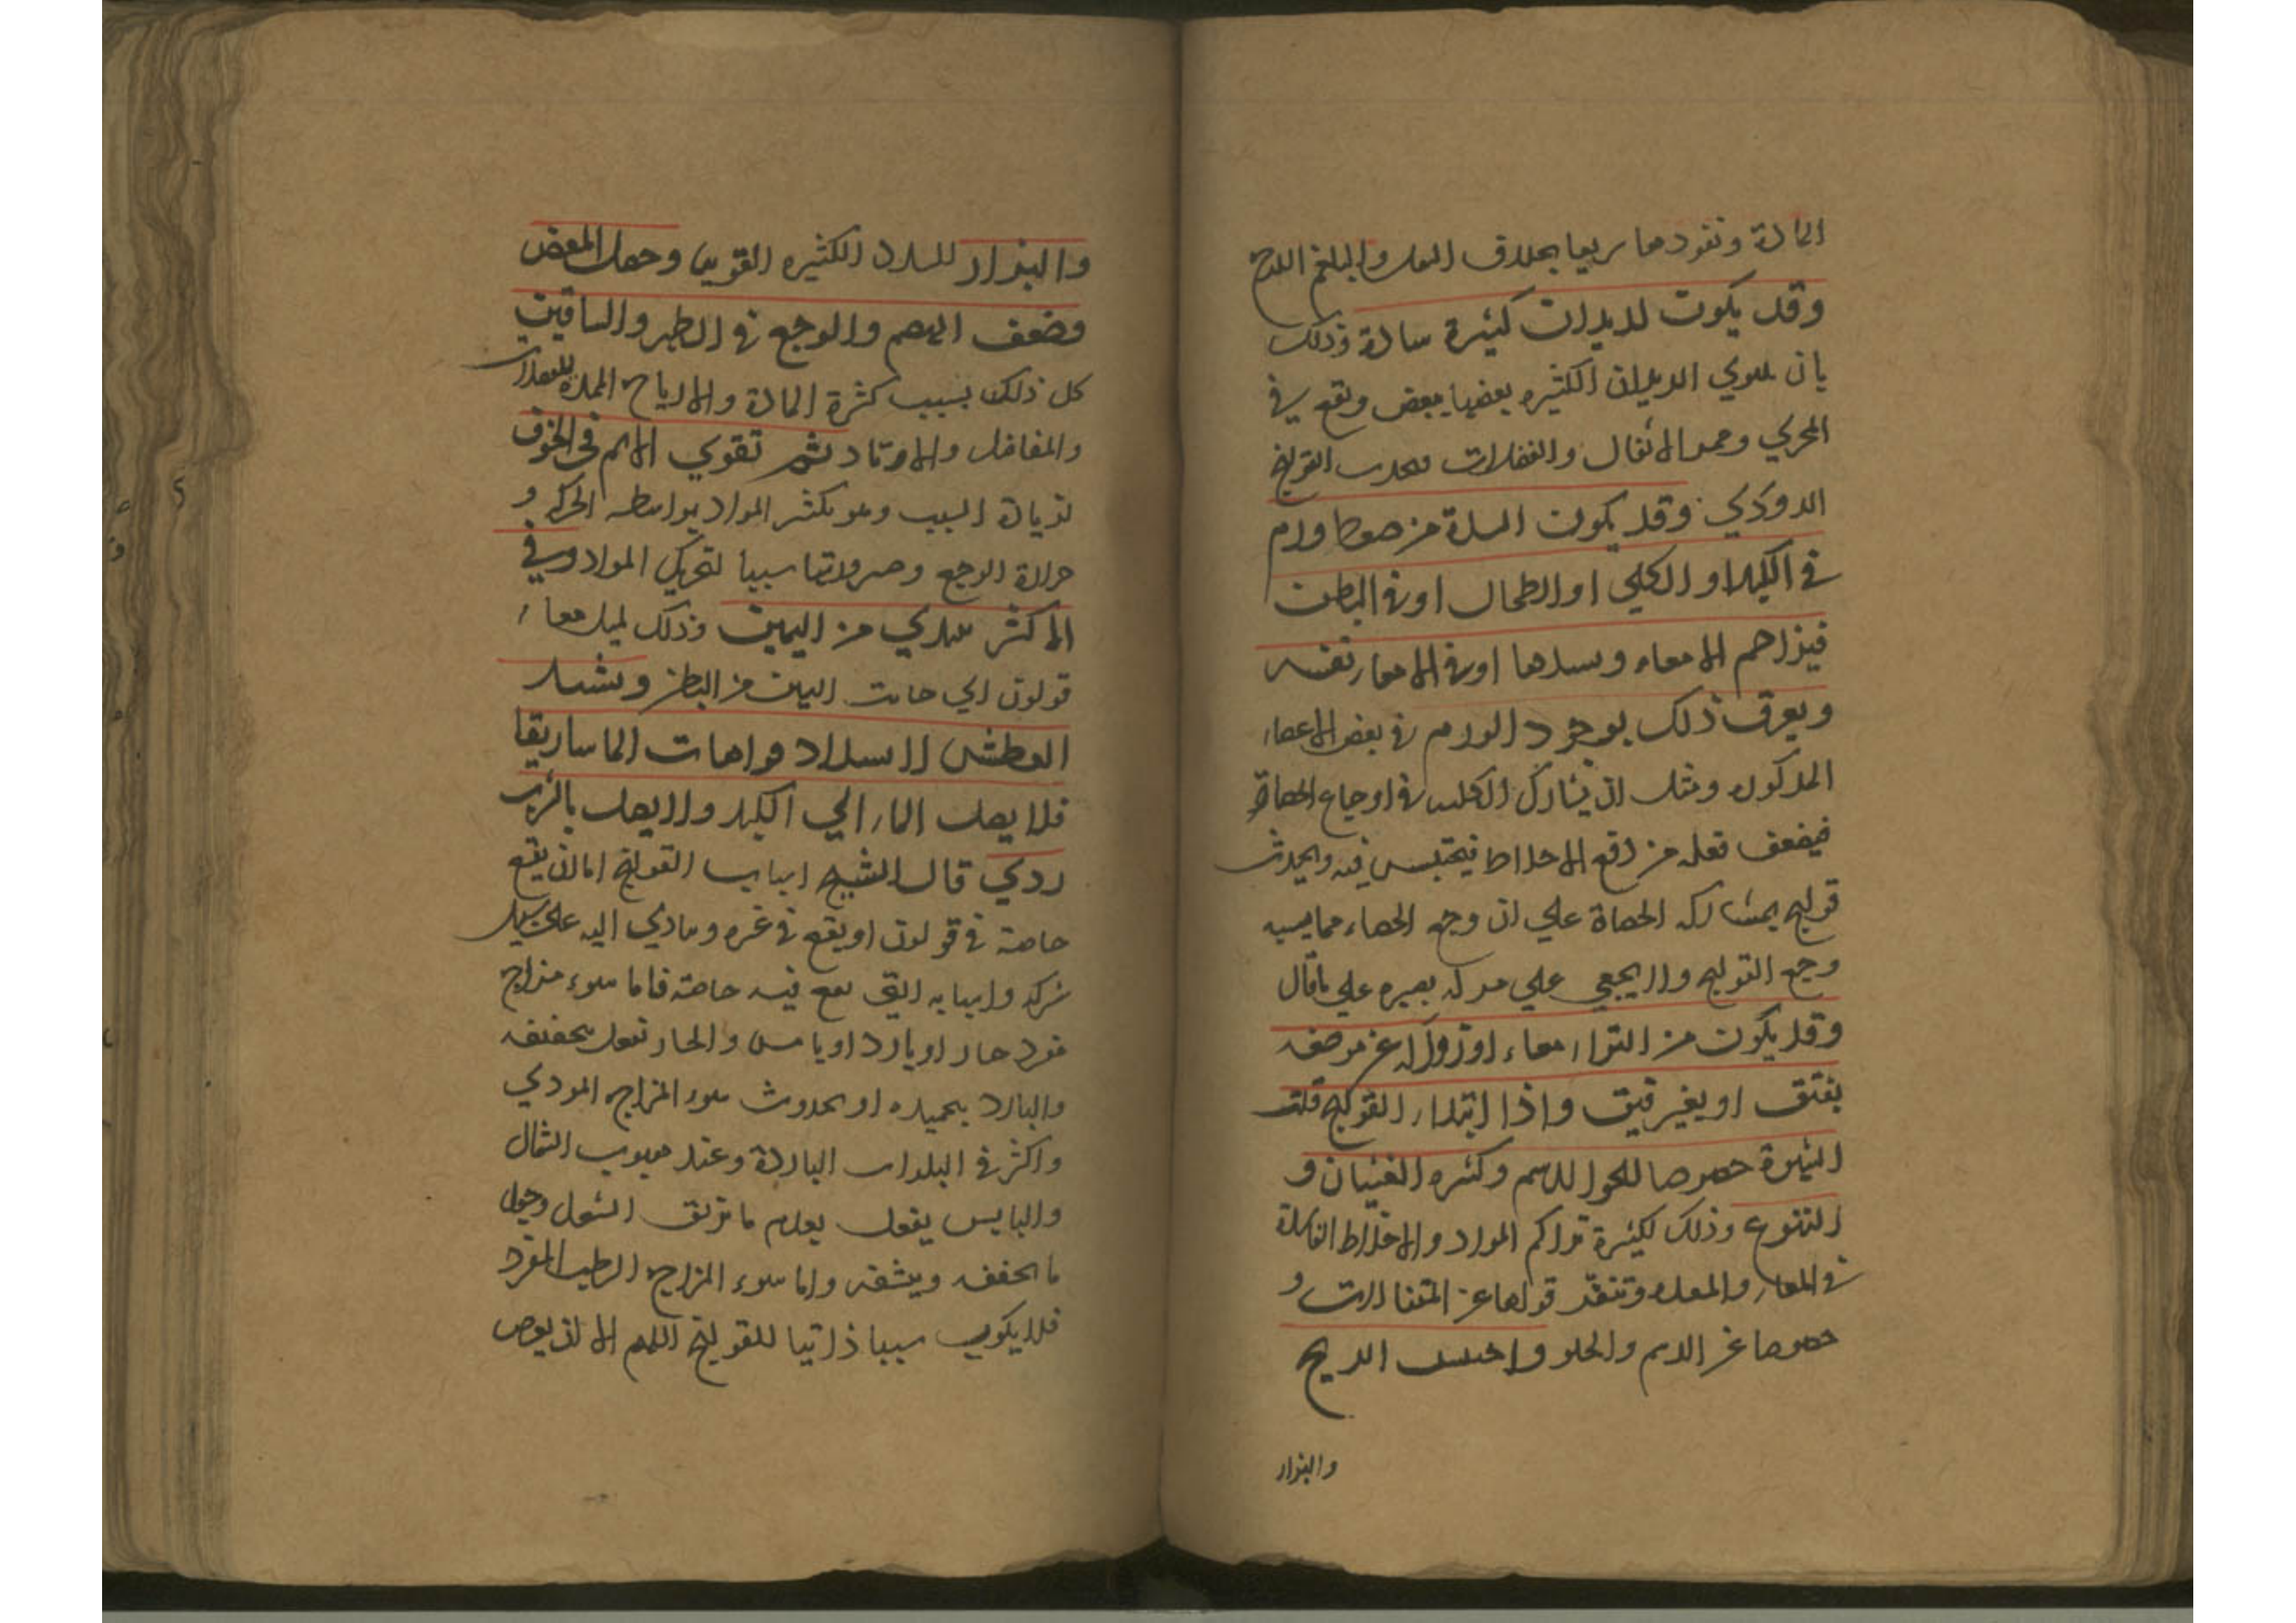 المادة ونفودها سريعا بخلاف الثفل والبلغم اللزج
وقد يكون لديدان كثيرة سادة وذلك
بان يلتوي الديدان الكثيره بعضها ببعض وتقع في
المجري الاثقال والفضلات القولنج
الدودي وقد يكون السدة من ورم
في الكبد او الكلي او الطحال او في البطن
فيزاحم الامعاء ويسدها او في الامعاء نفسه
ويعرف ذلك بوجود الورم في بعض الاعضاء
المذكوره ومثل ان يشارك في اوجاع الحصاة
فيضعف فعله من دفع الاخلاط فيحتبس فيه ويحدث
قولنج بمشاركه الحصاة علي ان وجع الحصاء مما يشبه
وجع القولنج ولا يخفي علي بصيره علي ما قال
وقد يكون من التواء معاء او زواله عن موضعه
بفتق او بغير فتق واذا ابتداء القولنج قلت
الشهوة خصوصا للحوا الدسم وكثره الغثيان و
التنوع وذلك لكثرة تراكم المواد والاخلاط الفاسدة
في المعاء والمعده وتنفر قواها عن المتناولات و
خصوصا عن الدسم والحلو واحتبس الريح
والبزار
والبزار للسدد الكثيره القويه وحصل المغص
وضعف الهضم والوجع في الظهر والساقين
كل ذلك بسبب كثرة المادة والارياح الممددة
والمفاصل والاوتاد ثم تقوي الالم في الخوف
لزيادة السبب وهو تكثر المواد بواسطه الحركه و
حرارة الوجع وصيرورتها سببا لتحريك المواد وفي
الاكثر يبتدي من اليمين وذلك لميل معاء
قولون الي جانب اليمين من البطن ويشتد
العطش لانسداد فواهات الماساريقا
فلا يصل الماء الي الكبد ولا يصل بالشرب
ردي قال الشيخ اسباب القولنج اما ان يقع
خاصة في قولون او يقع في غيره ويتادي اليه علي سبيل
شركه واسبابه التي تقع فيه خاصة فاما سوء مزاج
مفرد حار او بارد او يابس والحار تفعل بتجفيفه
والبارد بتجميده او بحدوث سوء المزاج المودي
واكثر في البلدان الباردة وعند هبوب الشمال
واليابس يفعل بعدم ما يزلق الثفل وحصول
ما يجففه وينشفه واما سوء المزاج الرطب المفرد
فلا يكون سببا ذاتيا للقولنج اللهم الا ان يعرض